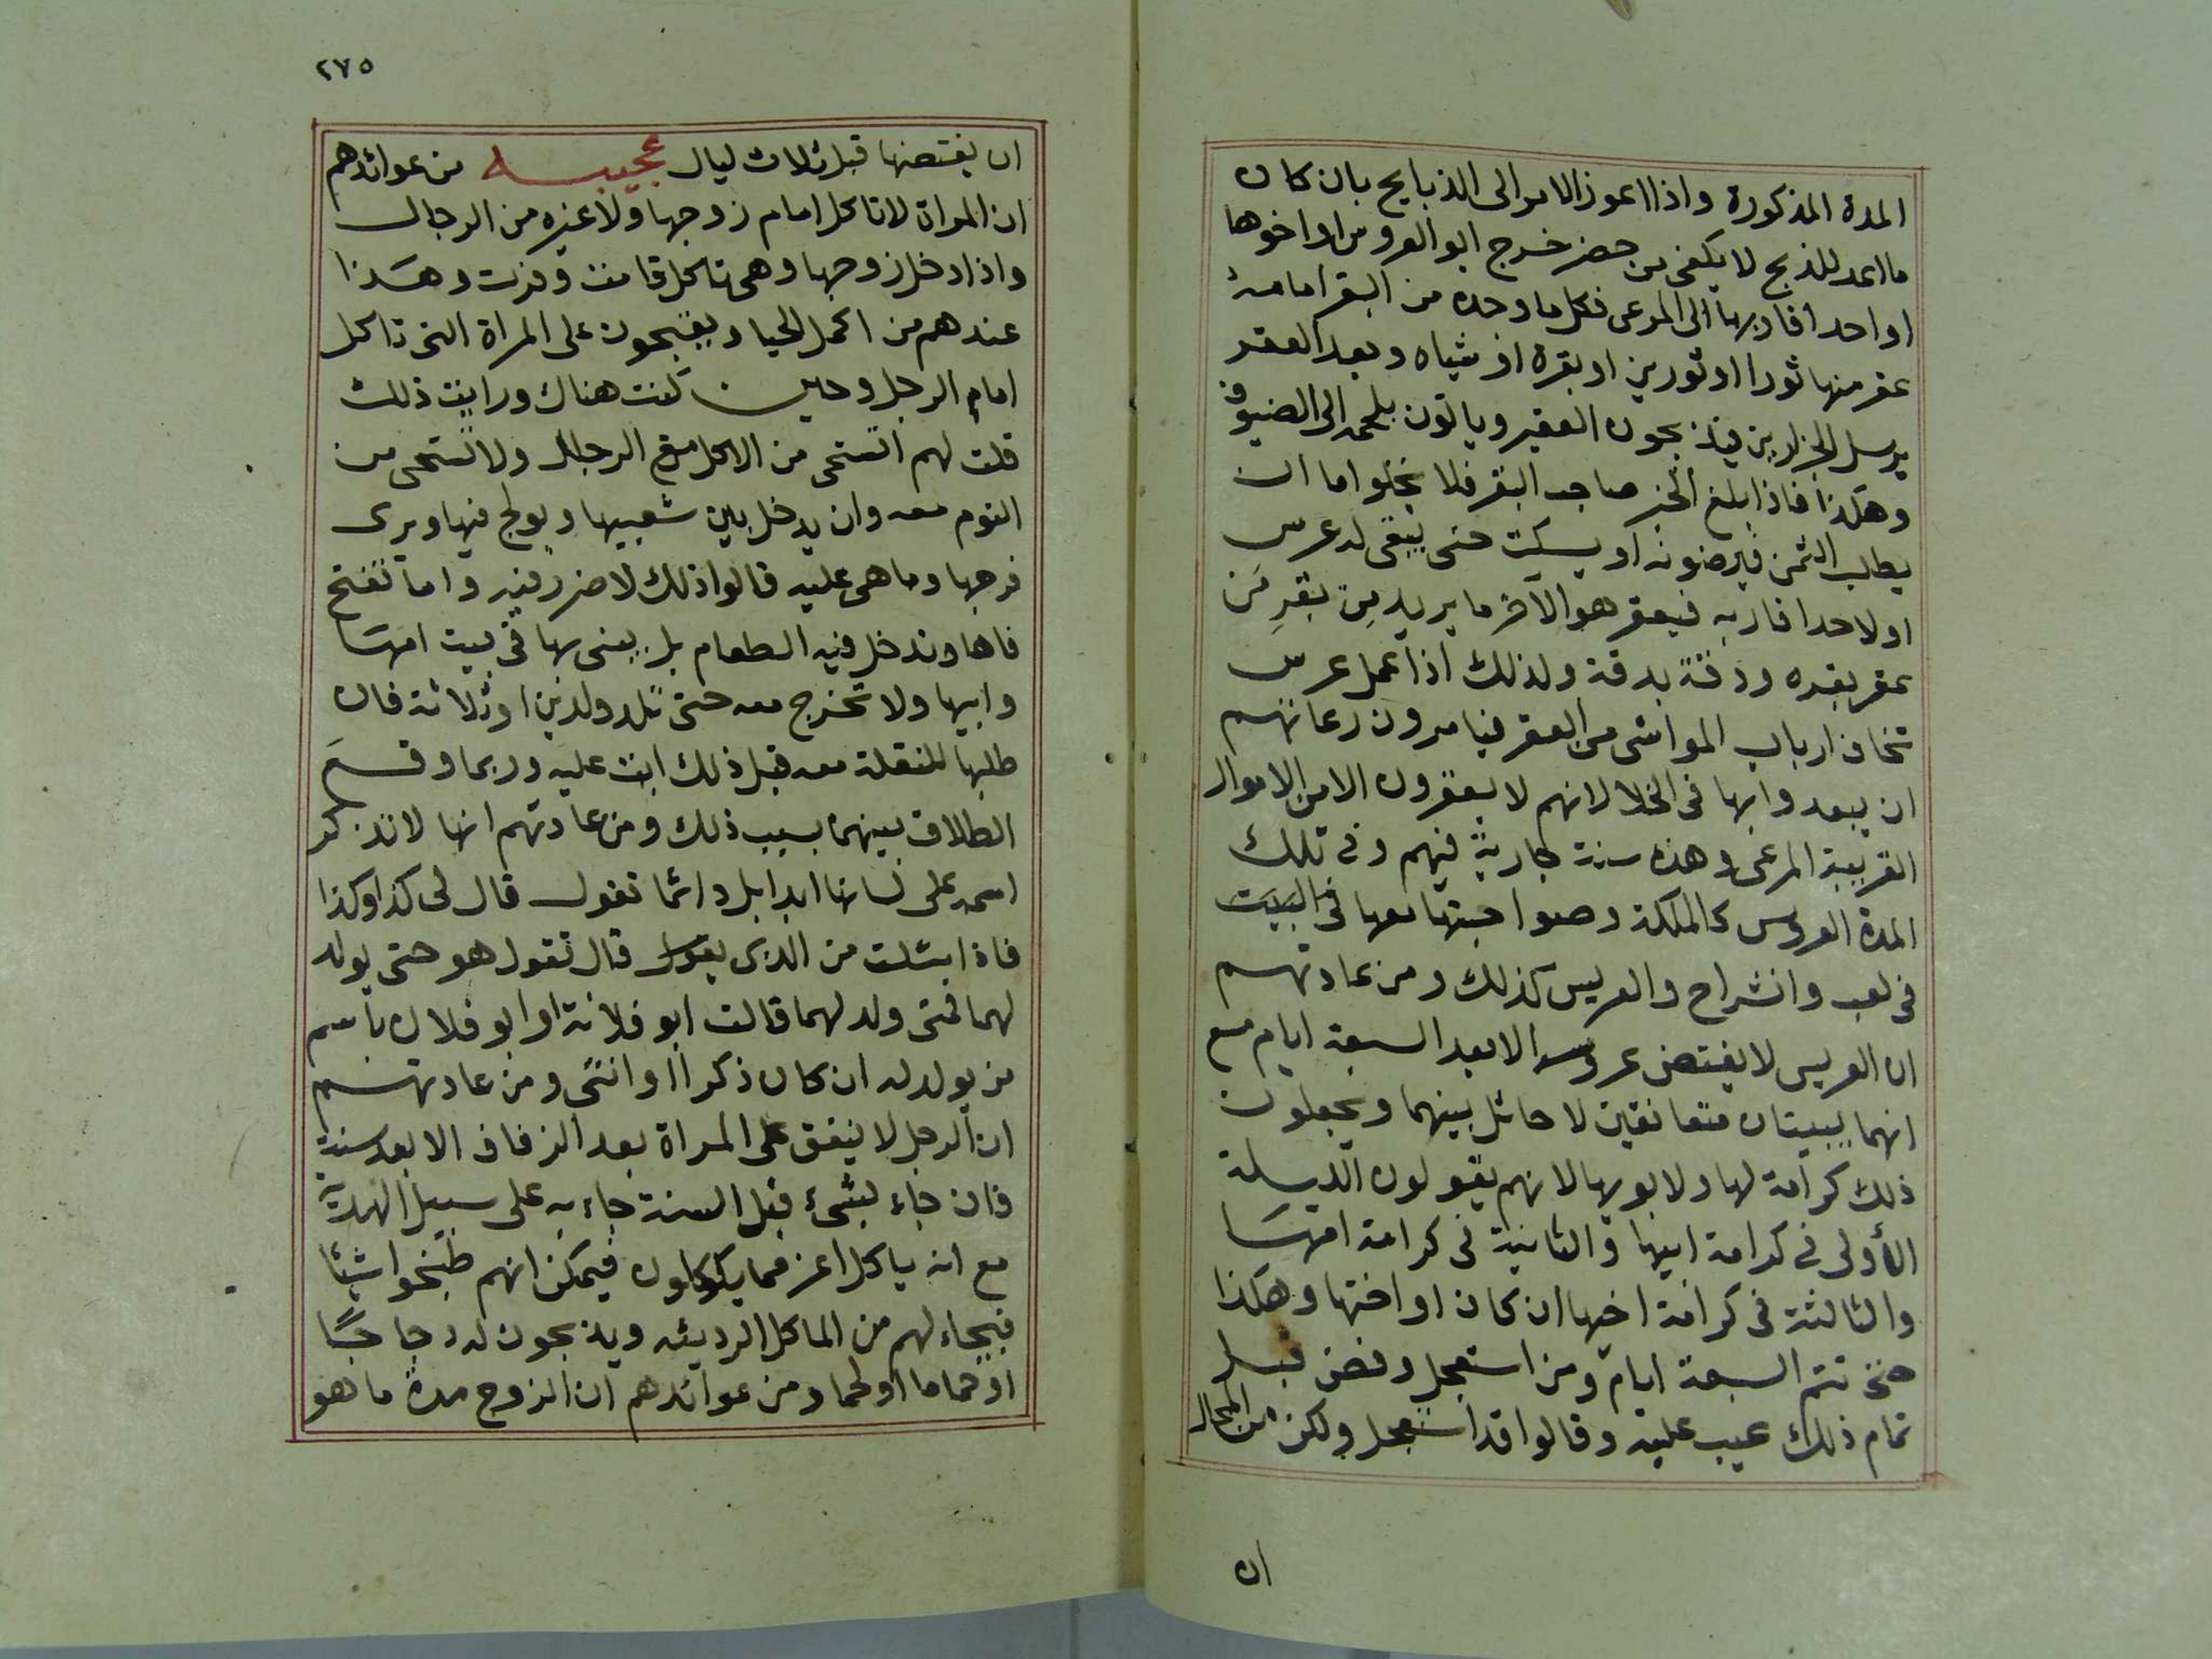 المدة المذكورة واذا اعوز الامر الى الذبايح بان كان
ما اعد للذبح لا يكفى من حضر خرج ابو العروس او اخوها
او احد اقاربها الى المرعى فكل ما وجده من البقر امامه
عقر منها ثورا او ثورين او بقرة او شياه وبعد العقر
يرسل الجزارين فيذبحون العقير وياتون بلحمه الى الضيوف
وهكذا فاذا بلغ الخبر صاحب البقر فلا يخلو اما ان
يطلب الثمن فيرضونه او يسكت حتى يبقى له عرس
او لاحد اقاربه فيعقر هو الآخر ما يريد من بقرِ مَن
عقر بقره ودقة بدقة ولذلك اذا عمل عرس
تخاف ارباب المواشى من العقر فيامرون رعاتهم
ان يبعدوا بها فى الخلا لانهم لا يعقرون الا من الاموال
القريبة المرعى وهذه سنة جارية فيهم وفى تلك
المدة العروس كالملكة وصواحبتها معها فى البيت
فى لعب وانشراح والعريس كذلك ومن عادتهم
ان العريس لا يفتض عروسه الا بعد السبعة ايام مع
انهما يبيتان متعانقين لا حائل بينهما ويجعلون
ذلك كرامة لها ولابويها لانهم يقولون الليلة
الأولى فى كرامة ابيها والثانية فى كرامة امها
والثالثة فى كرامة اخيها ان كان او اختها وهكذا
حتى تتم السبعة ايام ومن استعجل وفض قبل
تمام ذلك عيب عليه وقالوا قد استعجل ولكن من المحال
ان
٢٧٥
ان يفتضها قبل ثلاث ليال عجيبه من عوائدهم
ان المراة لا تاكل امام زوجها ولا غيره من الرجال
واذا دخل زوجها وهى تاكل قامت وفرت وهذا
عندهم من اكمل الحيا ويقبحون على المراة التى تاكل
امام الرجل وحين كنت هناك ورايت ذلك
قلت لهم اتستحى من الاكل مع الرجل ولا تستحى من
النوم معه وان يدخل بين شعبيها ويولج فيها ويرى
فرجها وما هى عليه قالوا ذلك لا ضرر فيه واما تفتح
فاها وتدخل فيه الطعام بل يبنى بها فى بيت امها
وابيها ولا تخرج معه حتى تلد ولدين او ثلاثة فان
طلبها للنقلة معه قبل ذلك ابت عليه وربما وقع
الطلاق بينهما بسبب ذلك ومن عادتهم انها لا تذكر
اسمه على لسانها ابدا بل دائما تقول قال لى كذا وكذا
فاذا سئلت من الذى يقول قال تقول هو حتى يولد
لهما فمتى ولد لهما قالت ابو فلانة او ابو فلان باسم
من يولد له ان كان ذكرا او انثى ومن عادتهم
ان الرجل لا ينفق على المراة بعد الزفاف الا بعد سنة
فان جاء بشىء قبل السنة جاء به على سبيل الهدية
مع انه ياكل اعز مما ياكلون فيمكن انهم طبخوا شيئا
فيجاء لهم من الماكل الرديئه ويذبحون له دجاجا
او حماما او لحما ومن عوائدهم ان الزوج مدة ما هو